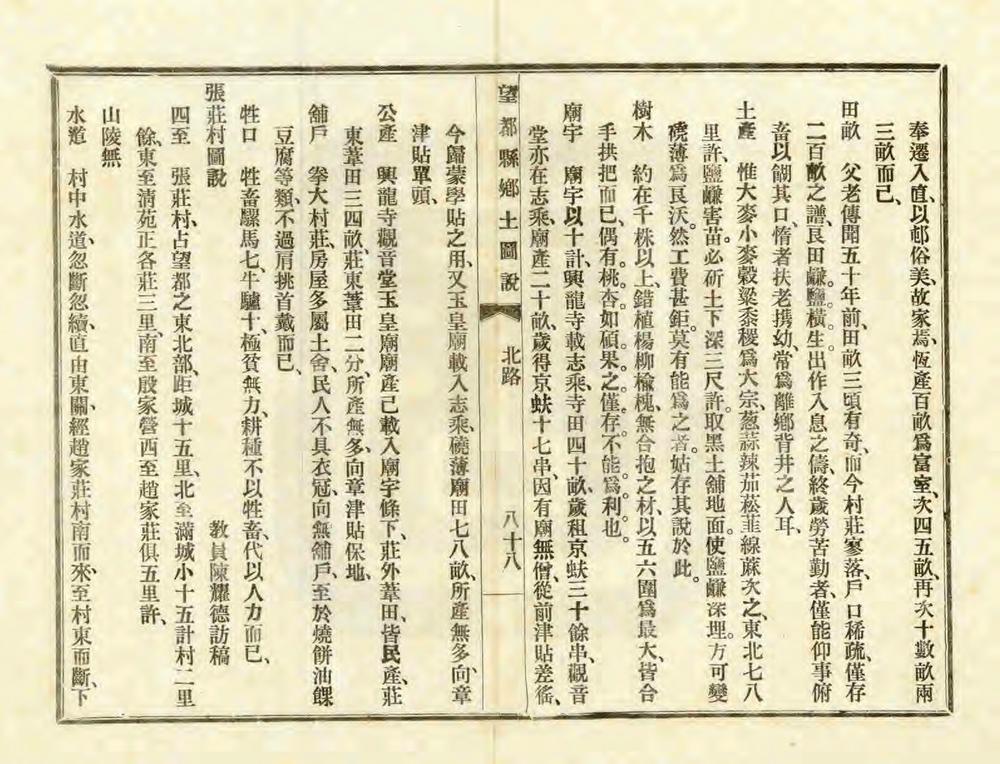 奉遷入直、以邨俗美、故家焉、恆產百畝爲富室、次四五畝、再次十數畝兩
三畝而已、
田畝　父老傳聞五十年前、田畝三頃有奇、而今村莊寥落、戶口稀疏、僅存
二百畝之譜、艮田鹻鹽橫生、出作入息之儔、終歲勞苦勤者、僅能仰事俯
畜以餬其口惰者扶老携幼、常爲離鄉背井之人耳、
土產　惟大麥小麥穀粱黍稷爲大宗、葱蒜辣茄菘韮線蔴次之、東北七八
里許、鹽鹻害苗必斫土下深三尺許、取黑土舖地面、使鹽鹻深埋、方可變
磽薄爲艮沃。然工費甚鉅。莫有能爲之者。姑存其說於此。
樹木　約在千株以上、錯植楊柳榆槐、無合抱之材、以五六圍爲最大、皆合
手拱把而已、偶有桃杏。如碩果之僅存。不能爲利也。
廟宇　廟宇以十計興龍寺載志乘、寺田四十畝歲租京蚨三十餘串、觀音
堂亦在志乘、廟產二十畝、歲得京蚨十七串、因有廟無僧、從前津貼差徭、
望都縣鄉土圖說　北路　八十八
今歸蒙學貼之用、又玉皇廟載入志乘、磽薄廟田七八畝、所產無多、向章
津貼單頭、
公產　興龍寺觀音堂玉皇廟廟產已載入廟宇條下、莊外葦田、皆民產、莊
東葦田三四畝、莊東葦田二分、所產無多、向章津貼保地、
舖戶　拳大村莊、房屋多屬土舍、民人不具衣冠、向無舖戶、至於燒餅油餜
豆腐等類、不過肩挑首戴而已、
牲口　牲畜騾馬七、牛驢十、極貧無力、耕種不以牲畜、代以人力而已、
張莊村圖說　教員陳耀德訪稿
四至　張莊村、占望都之東北部、距城十五里、北至滿城小十五計村二里
餘、東至淸苑正各莊三里、南至殷家營西至趙家莊俱五里許、
山陵無
水道　村中水道、忽斷忽續、直由東關、經趙家莊村南而來、至村東而斷、下